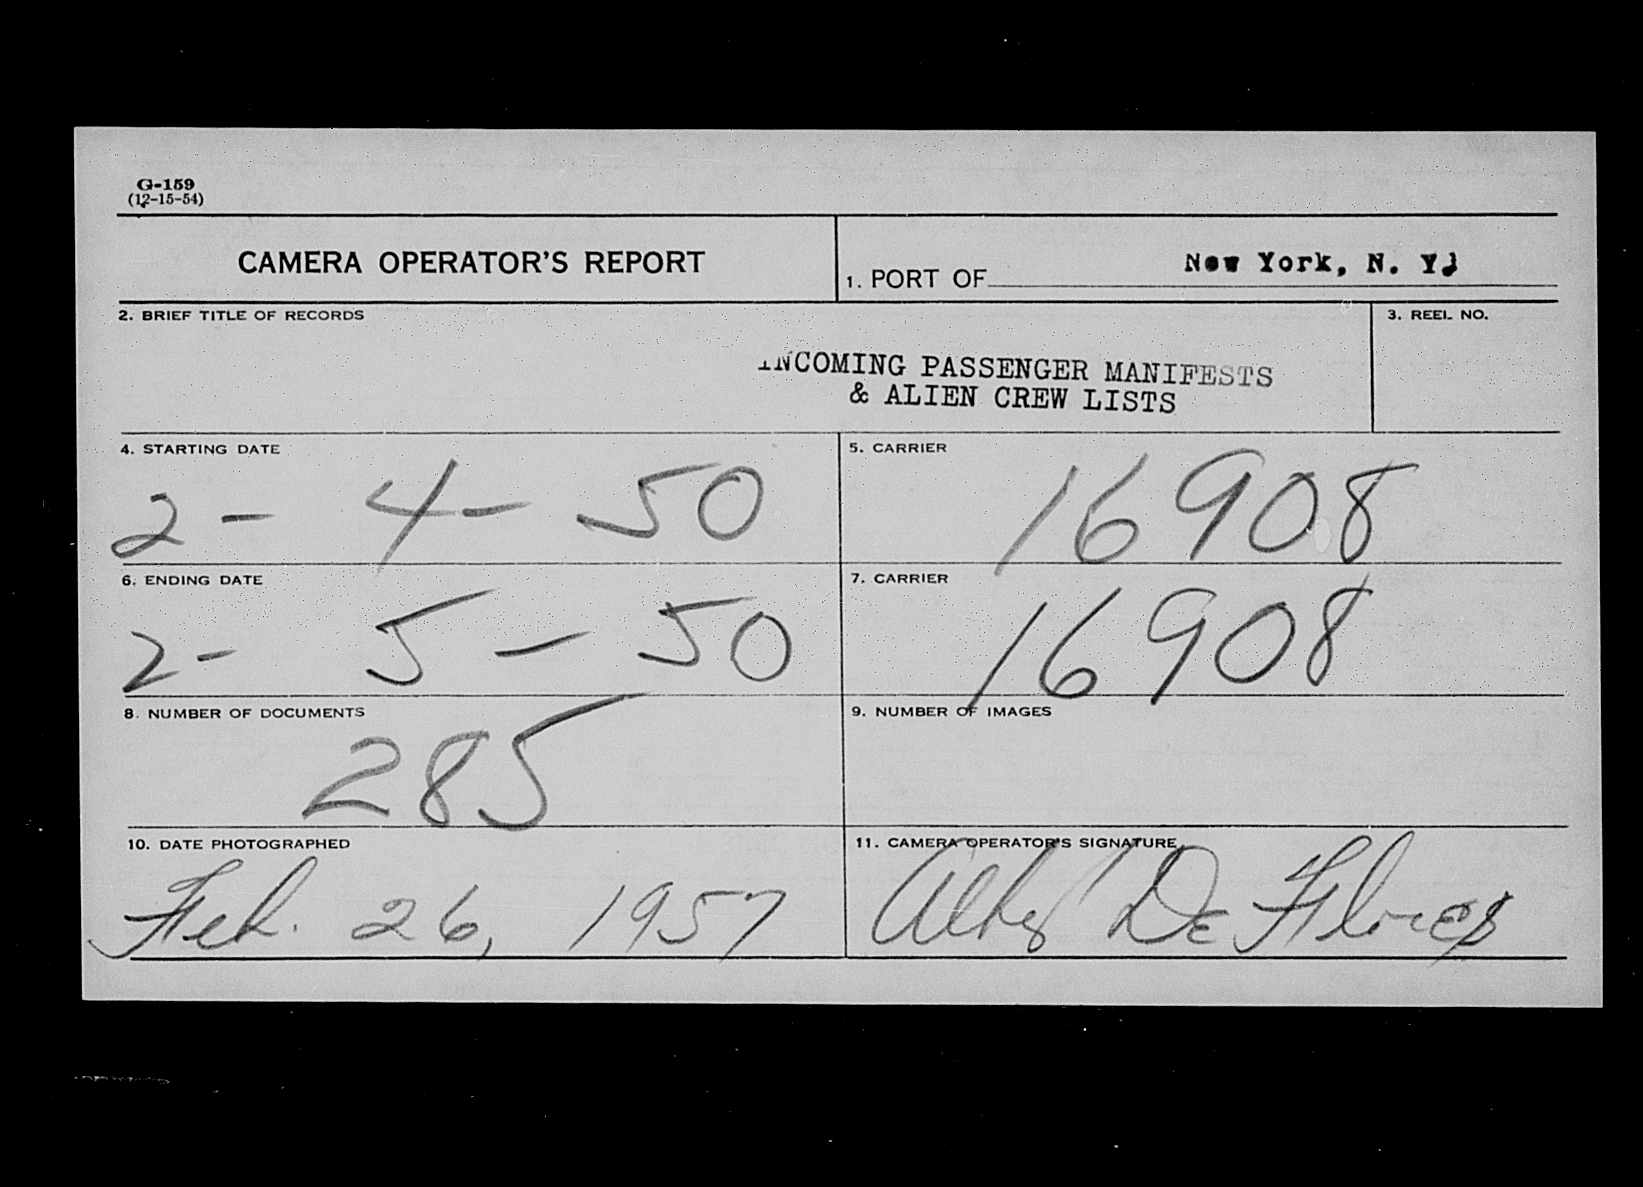 G-159
(12-15-54)
CAMERA OPERATOR'S REPORT
1. PORT OF New York, N. Y.
2. BRIEF TITLE OF RECORDS
3. REEL NO.
INCOMING PASSENGER MANIFESTS
& ALIEN CREW LISTS
4. STARTING DATE
2 - 4 - 50
5. CARRIER
16908
6. ENDING DATE
2 - 5 - 50
7. CARRIER
16908
8. NUMBER OF DOCUMENTS
285
9. NUMBER OF IMAGES
10. DATE PHOTOGRAPHED
Feb. 26, 1957
11. CAMERA OPERATOR'S SIGNATURE
De